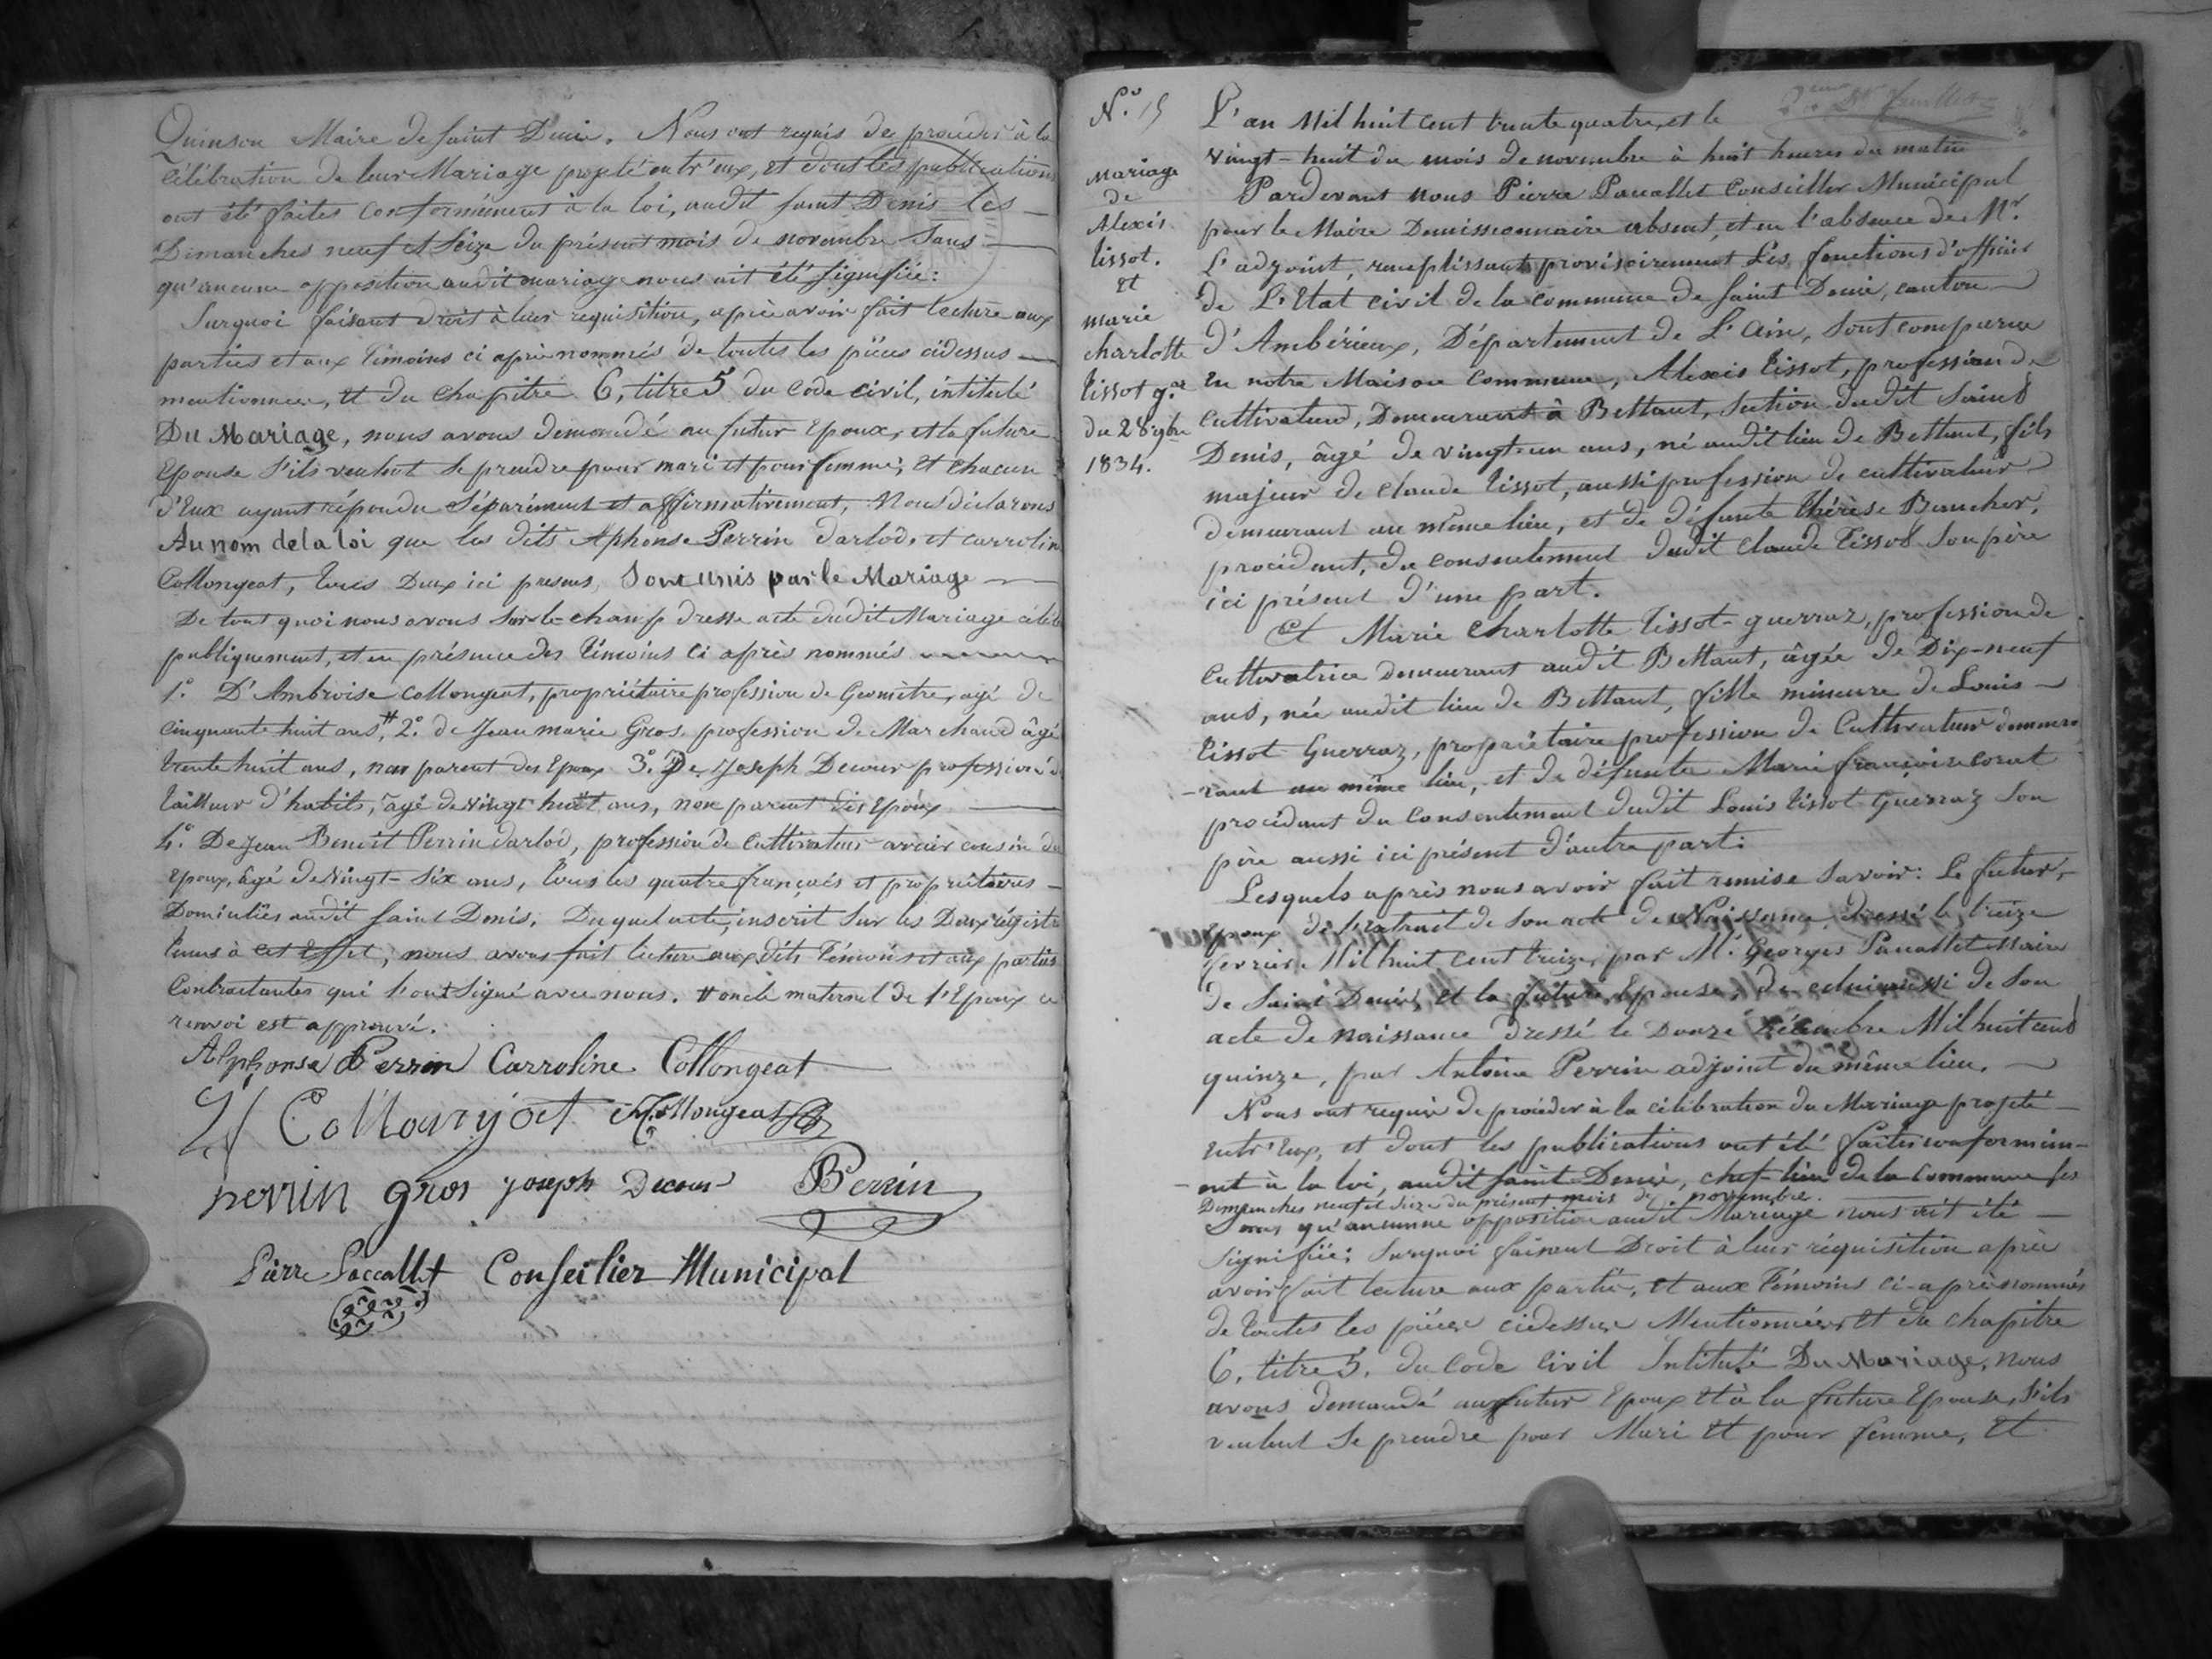 Quinson Maire de saint Denis. Nous ont requis de procéder à la
célébration de leur Mariage projeté entr'eux, et dont les publications
ont été faites conformément à la loi, audit saint Denis les
Dimanches neuf et seize du présent mois de novembre sans
qu'aucune opposition audit mariage nous ait été signifiée:
Surquoi faisant droit à leur requisition, après avoir fait lecture aux
parties et aux témoins ci après nommés de toutes les pièces cidessus
mentionnées, et du chapitre 6, titre 5 du Code civil, intitulé
Du Mariage, nous avons demandé au futur Epoux, et la future
Epouse s'ils veulent se prendre pour mari et pour femme, et chacun
d'Eux ayant répondu séparément et affirmativement, Nous déclarons
Au nom de la loi que les dits Alphonse Perrin darlod, et carrolin
Collongeat, tous Deux ici presens, Sont unis par le Mariage
De tout quoi nous avons sur-le-champ dressé acte dudit Mariage célé
publiquement, et en présence des témoins ci après nommés
1.° D'Ambroise Collongeat, propriétaire profession de Géomètre, agé de
cinquante huit ans, # 2.° de Jean marie Gros profession de Marchand âgé
trente huit ans, non parent des Epoux 3.° De Joseph Decour profession d
tailleur d'habits, âgé de vingt huit ans, non parent des Epoux
4.° De Jean Benoit Perrin darlod, profession de cultivateur cousin du
Epoux, âgé de Vingt-six ans, tous les quatre français et propriétaires
Domiciliés audit saint Denis. Duquel acte, inscrit sur les Deux régistr
tenus à cet Effet, nous avons fait lecture aux dits témoins et aux parties
Contractantes qui l'ont signé avec nous. # oncle maternel de l'Epoux ce
renvoi est approuvé.
Alphonse Perrin Carroline Collongeat
Collongeat
perrin gros joseph Decour Perrin
Pierre Paccallet Conseilier Municipal
N.° 15
mariage
de
Alexis
tissot.
et
marie
charlotte
tissot g.az
du 28 9bre
1834.
L'an Mil huit cent trente quatre, et le
vingt-huit du mois de novembre à huit heures du matin
Pardevant nous Pierre Pacallet Conseiller Municipal
pour le Maire Demissionnaire absent, et en l'absence de Mr.
L'adjoint, remplissant provisoirement les fonctions d'officier
de L'Etat civil de la commune de saint Denis, canton
d'Ambérieux, Département de L'Ain, sont comparus
En notre Maison Commune, Alexis tissot, profession de
cultivateur, Demeurant à Bettant, section dudit saint
Denis, âgé de vingt-un ans, né audit lieu de Bettant, fils
majeur de claude tissot, aussi profession de cultivateur
demeurant au même lieu, et de défunte thérèse Baucher,
procédant, du consentement dudit claude tissot son père
ici présent d'une part.
Et Marie charlotte tissot-guerraz, profession de
Cultivatrice demeurant audit Bettant, âgée de Dix-neuf
ans, née audit lieu de Bettant, fille mineure de Louis
tissot Guerraz, propriétaire profession de Cultivateur demeu
-rant au même lieu, et de défunte Marie françoise corat
procédant du Consentement dudit Louis tissot Guerraz son
père aussi ici présent d'autre part:
Lesquels après nous avoir fait remise savoir: Le futur
Epoux de l'extrait de son acte de Naissance, dressé le treize
fevrier Mil huit cent treize, par Mr. Georges Pacallet Maire
de Saint Denis, et la future Epouse, de celui aussi de son
acte de naissance dressé le Douze Décembre Mil huit cent
quinze, par Antoine Perrin adjoint du même lieu.
Nous ont requis de procéder à la célébration du Mariage projeté
entr'Eux, et dont les publications ont été faites conformém-
-ent à la loi, audit saint-Denis, chef-lieu de la Commune les
Dimanches neuf et seize du présent mois de novembre.
Sans qu'aucunne opposition audit Mariage nous ait été
signifiée; Surquoi faisant Droit à leur réquisition après
avoir fait lecture aux parties, et aux témoins ci-après nommés
de toutes les pièces cidessus Mentionnées, et du chapitre
6, titre 5, du Code Civil Intitulé Du Mariage, nous
avons demandé au futur Epoux et à la future Epouse, s'ils
veulent se prendre pour Mari et pour femme, et